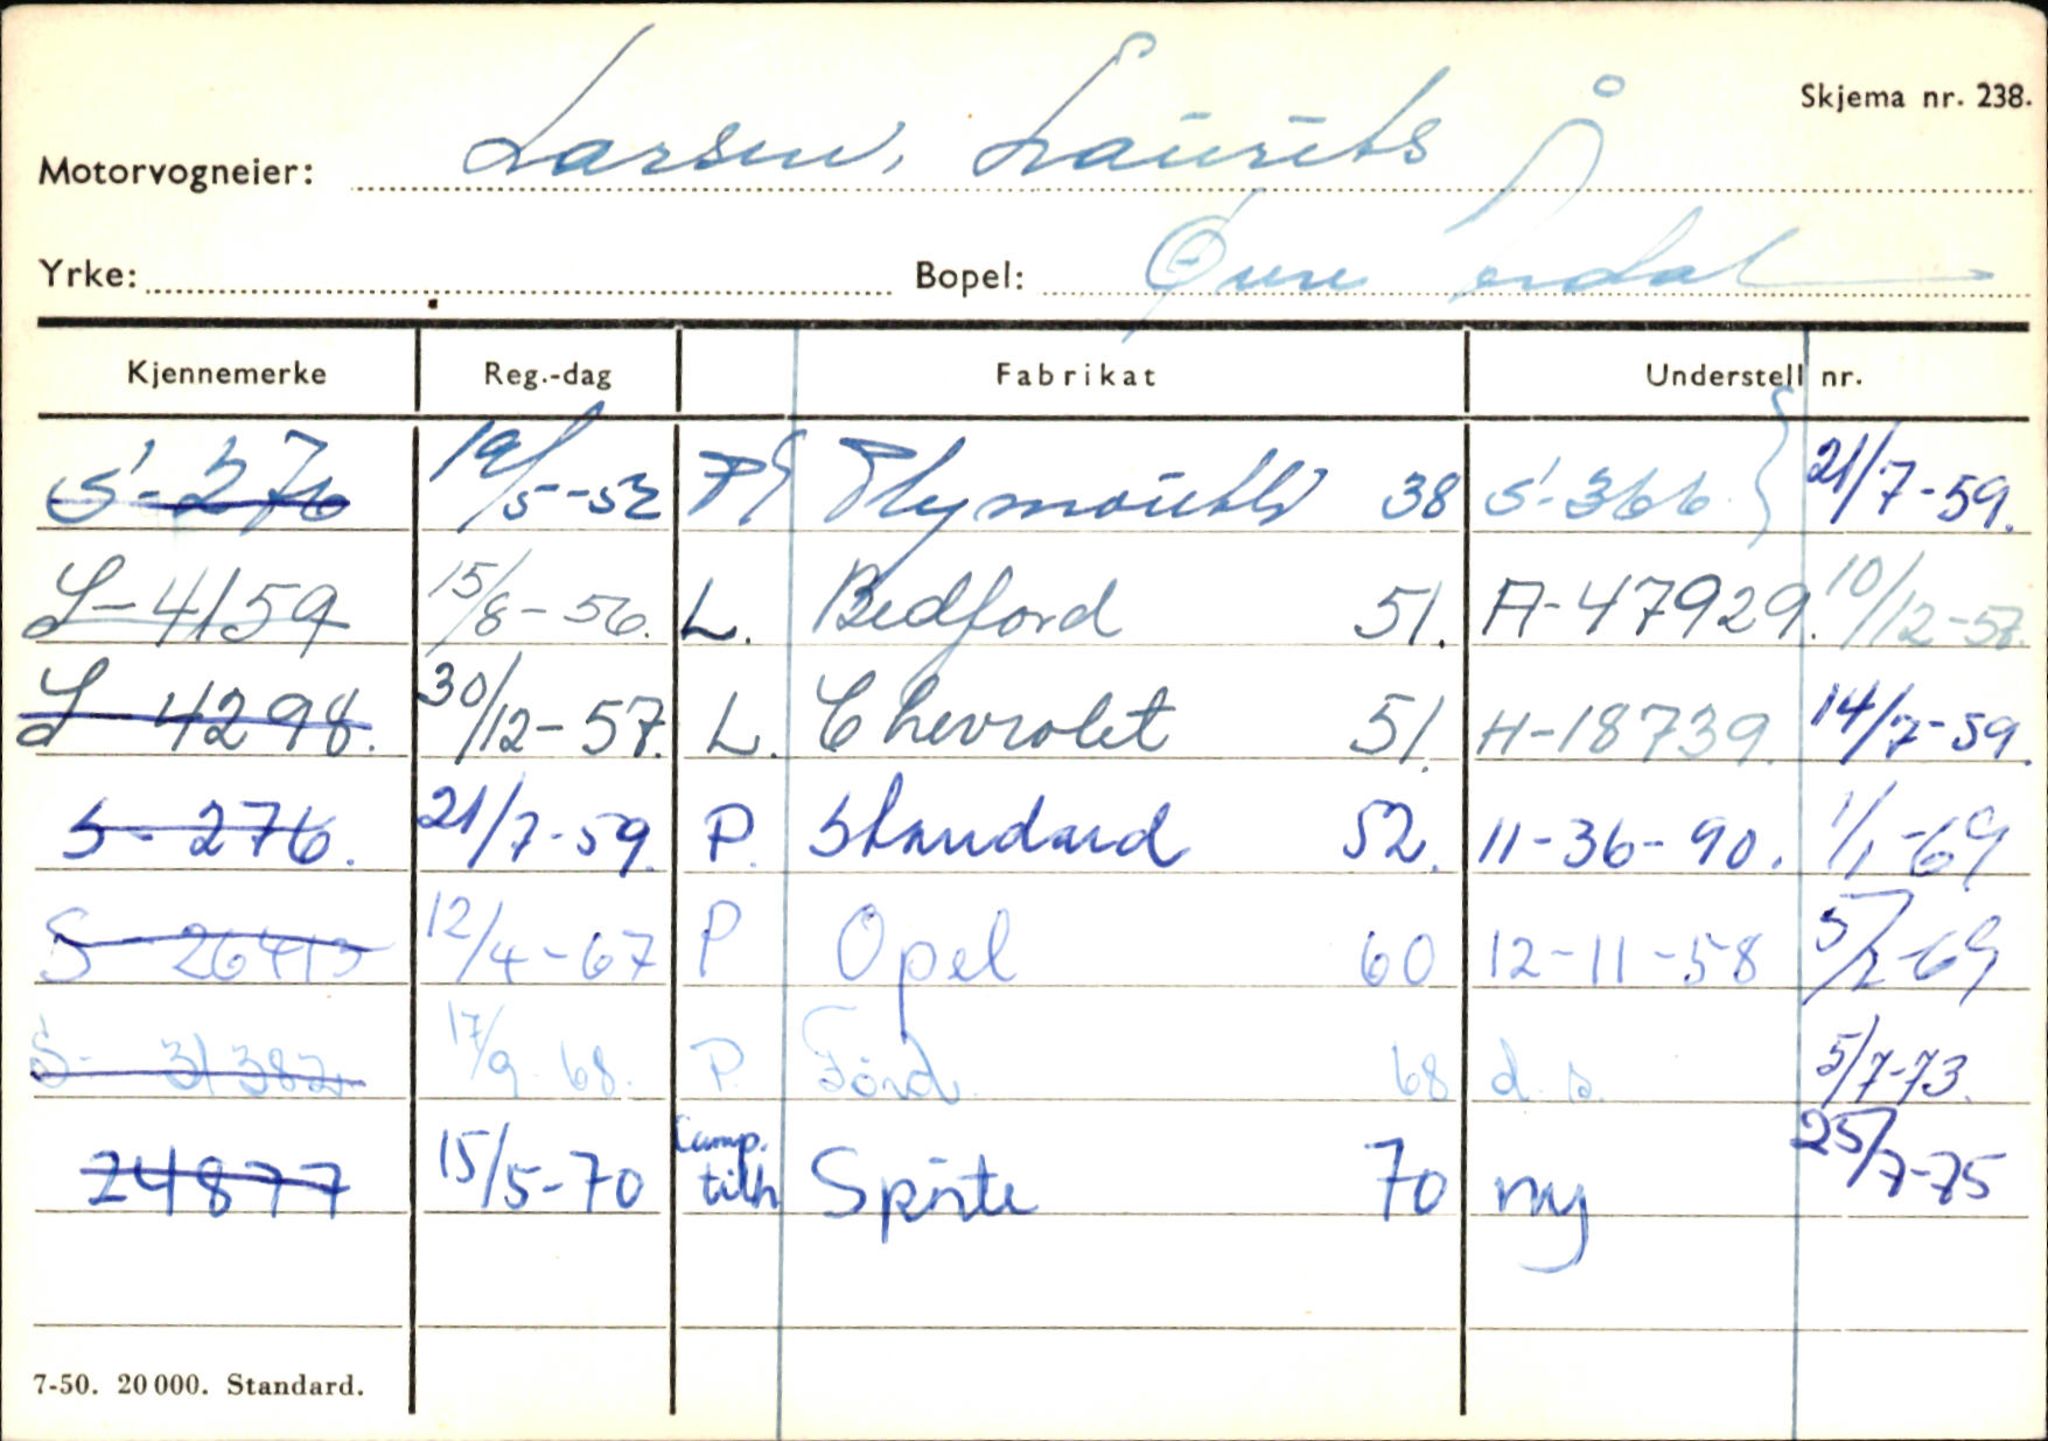 Skjema nr. 238.
Motorvogneier: Larsen, Laurits
Yrke: Bopel: Øvre Årdal
Kjennemerke Reg.-dag Fabrikat Understell nr.
S-276 19/5-52 P Plymouth 38 S-366 21/7-59.
S-4159 15/8-56. L. Bedford 51. A-47929. 10/12-57.
S-4298. 30/12-57. L. Chevrolet 51. H-18739. 14/7-59.
S-276. 21/7-59. P. Standard 52. 11-36-90. 1/1-69
S-26413 12/4-67 P Opel 60 12-11-58 5/2-69
S-31382 17/9-68. P. Ford 68 d.s. 5/7-73.
24877 15/5-70 Camp. tilh Sprite 70 ny 25/7-75
7-50. 20 000. Standard.